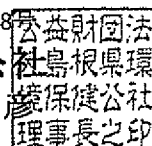 8号
社
彦
公益財団法
人島根県環
境保健公社
理事長之印